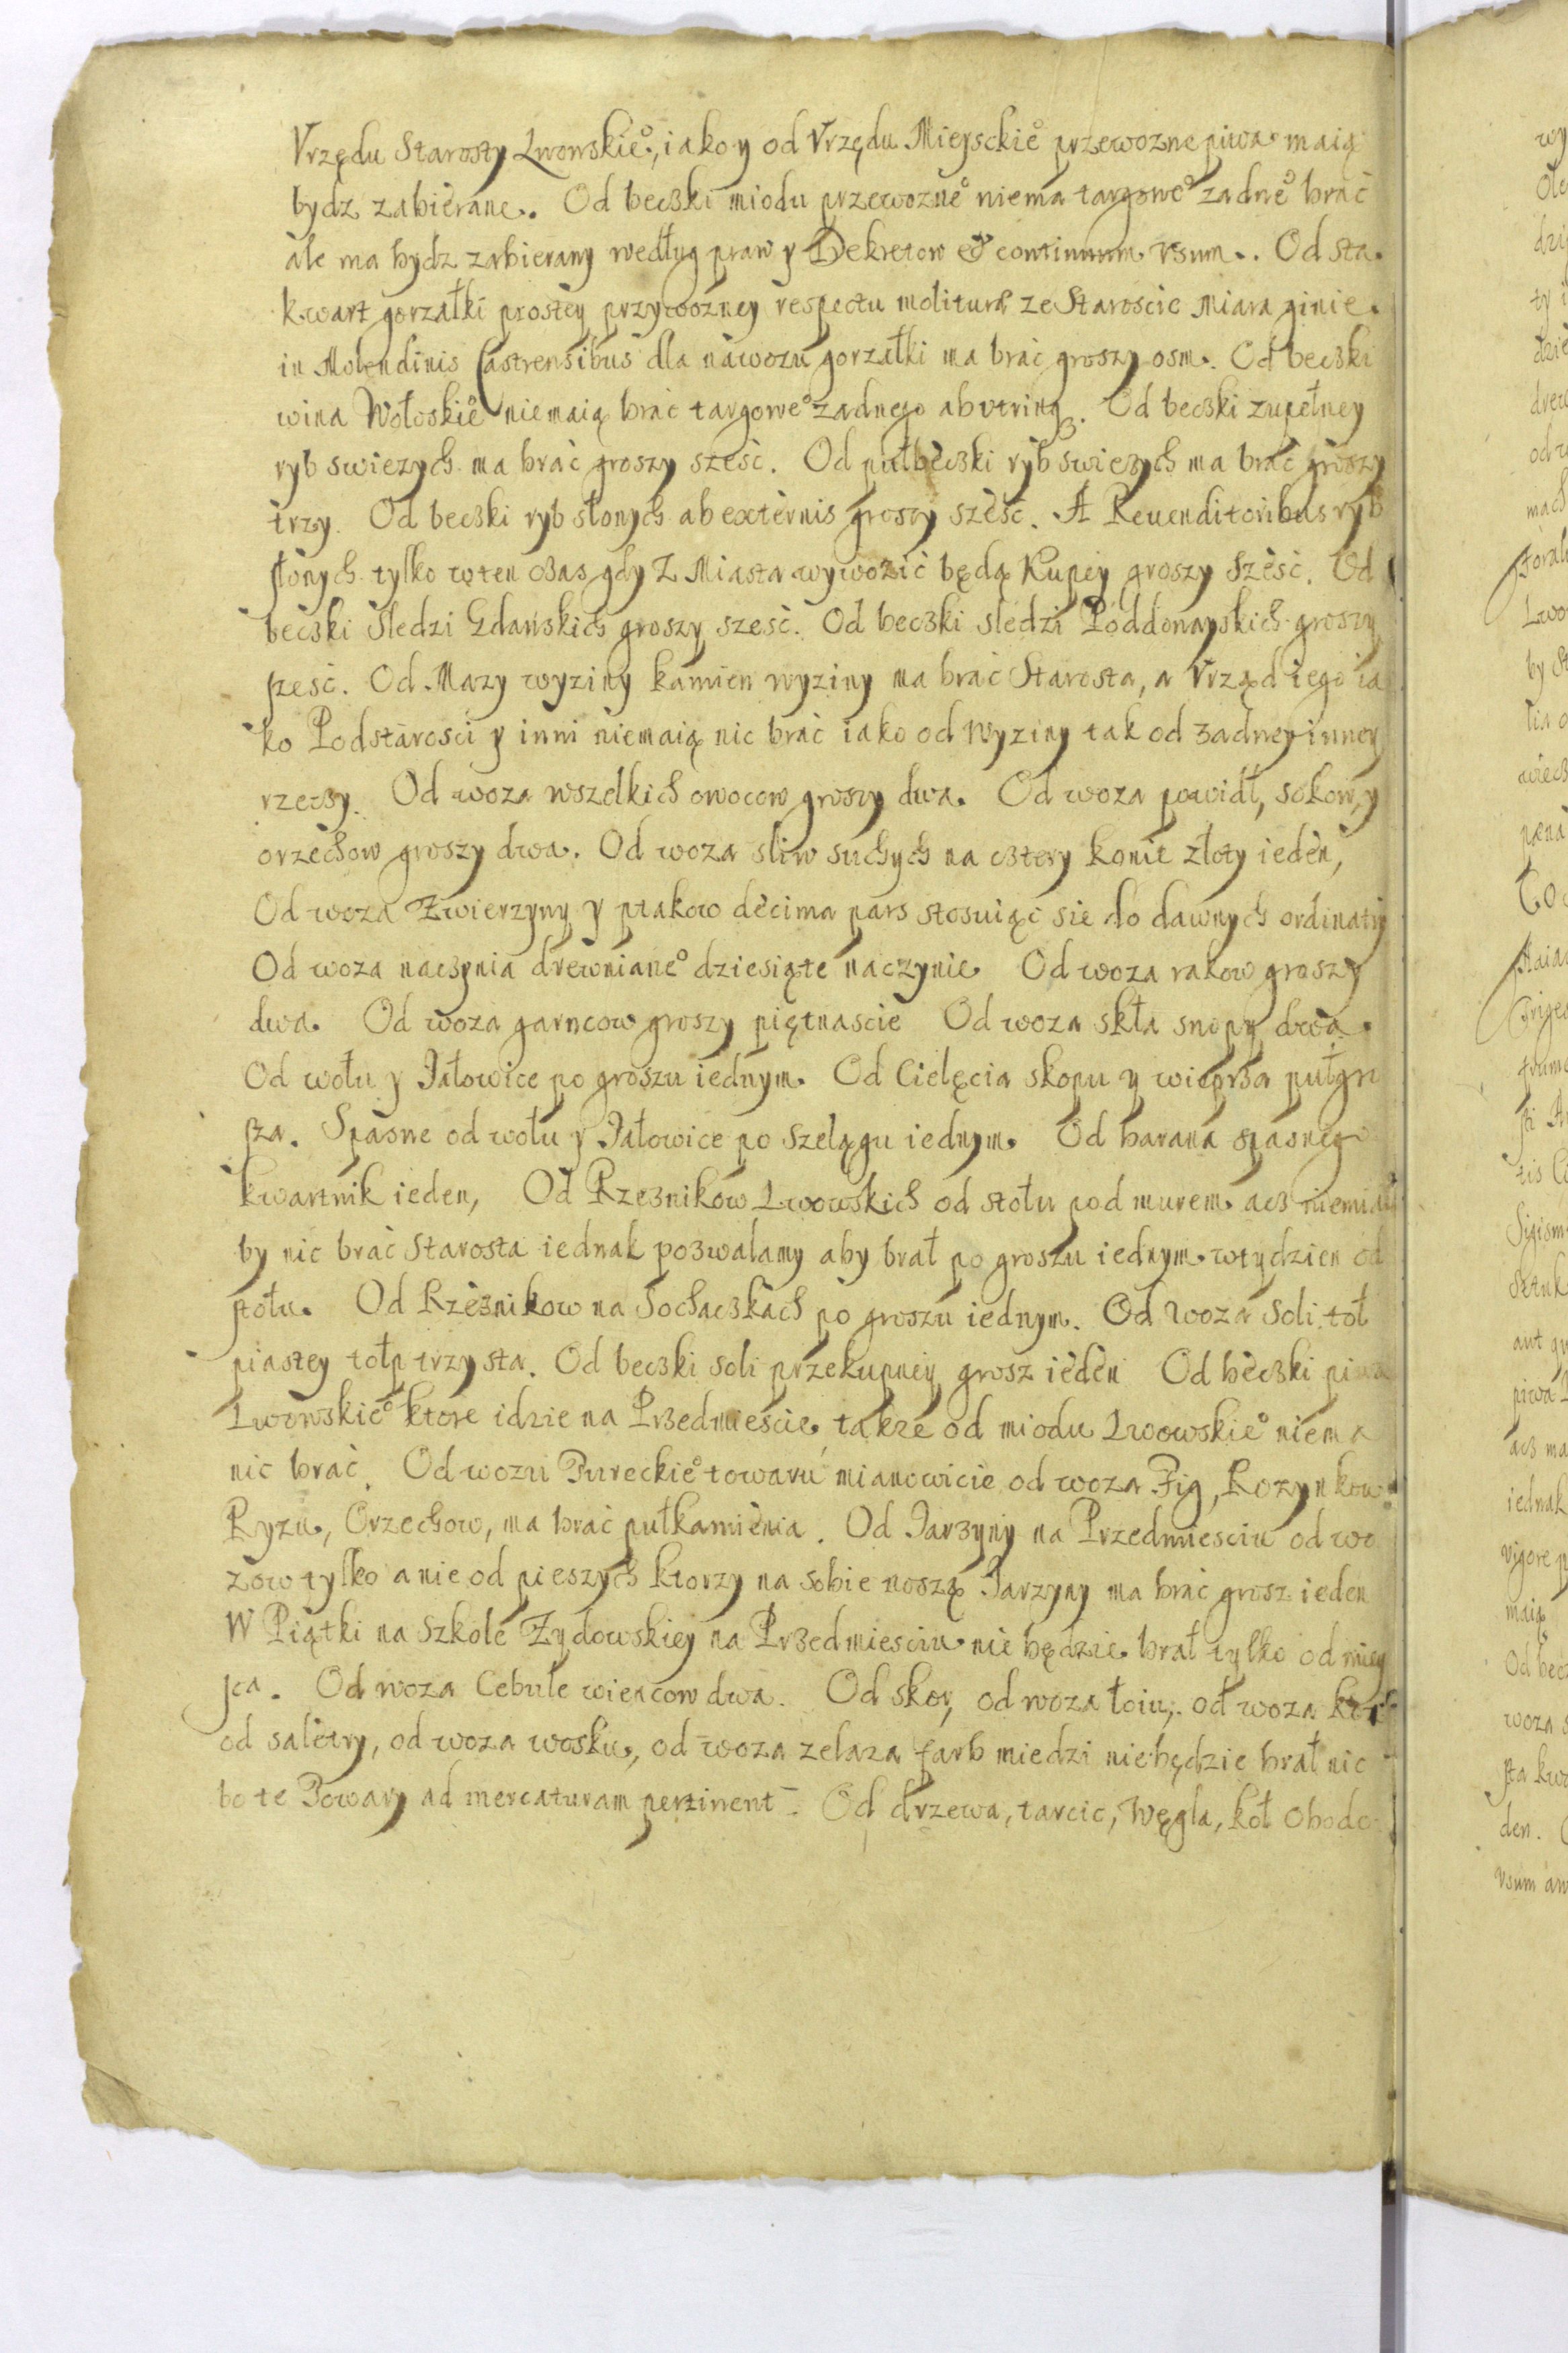 Vrzędu Starosty Lwowskie͛, iako y od Vrzędu Mieysckie͛ przewozne piwa maią
bydz zabierane. Od beczki miodu przewozne͛ niema targowe͛ zadne͛ brać
ale ma bydz zabierany według praw y Dekretow & continuum vsum. Od sta
kwart gorzałki prostey przywozney respectu moliturae ze Staroscie Miara ginie
in Molendinis Castrensibus dla nawozu gorzałki ma brać groszy osm. Od beczki
wina Wołoskie͛ niemaią brać targowe͛ zadnego ab vtrinq. Od beczki zupełney
ryb swiezych ma brać groszy sześć. Od pułbeczki ryb swiezych ma brać groszy
trzy. Od beczki ryb słonych ab externis groszy sześć. A Reuenditoribus ryb
słonych tylko w ten czas gdy Z Miasta wywozić będą Kupcy groszy sześć. Od
beczki sledzi Gdańskich groszy sześć. Od beczki sledzi Poddonayskich groszy
szesć. Od Mazy wyziny kamien wyziny ma brać Starosta, a Vrząd iego ia
ko Podstarosci y inni niemaią nic brać iako od wyziny tak od zadney inney
rzeczy. Od woza wszelkich owocow groszy dwa. Od woza powidł, sokow, y
orzechow groszy dwa. Od woza sliw suchych na cztery konie złoty ieden,
Od woza Zwierzyny y ptakow decima pars stosuiąc sie do dawnych ordinatiy
Od woza naczynia drewniane͛ dziesiąte naczynie Od woza rakow groszy
dwa. Od woza garncow groszy piętnascie Od woza skła snopy dwa.
Od wołu y Jałowice po groszu iednym. Od Cielęcia skopu y wieprza pułgro
sza. Spasne od wołu y Jałowice po szelągu iednym. Od barana spasneg
kwartnik ieden, Od Rzeznikow Lwowskich od stołu pod murem acz niemiał
by nic brać Starosta iednak pozwalamy aby brał po groszu iednym w tydzien od
stołu. Od Rzeznikow na Sochaczkach po groszu iednym. Od woza Soli toł
piastey tołp trzysta. Od beczki soli przekupney grosz ieden Od beczki piwa
Lwowskie͛ ktore idzie na Przedmieście, takze od miodu Lwowskie͛ niema
nic brać. Od wozu Tureckie͛ towaru mianowicie od woza Fig, Rozynkow
Ryzu, Orzechow, ma brać pułkamienia. Od Jarzyny na Przedmiesciu od wo
zow tylko a nie od pieszych ktorzy na sobie noszą Jarzyny ma brać grosz ieden
W Piątki na Szkole Zydowskiey na Przedmiesciu nie będzie brał tylko od miey
sca. Od woza Cebule wiencow dwa. Od skor, od woza łoiu, od woza
od saletry, od woza wosku, od woza zelaza farb miedzi niebędzie brał nic
bo te Towary ad mercaturam pertinent. Od drzewa, tarcic, Węgla, koł obodo